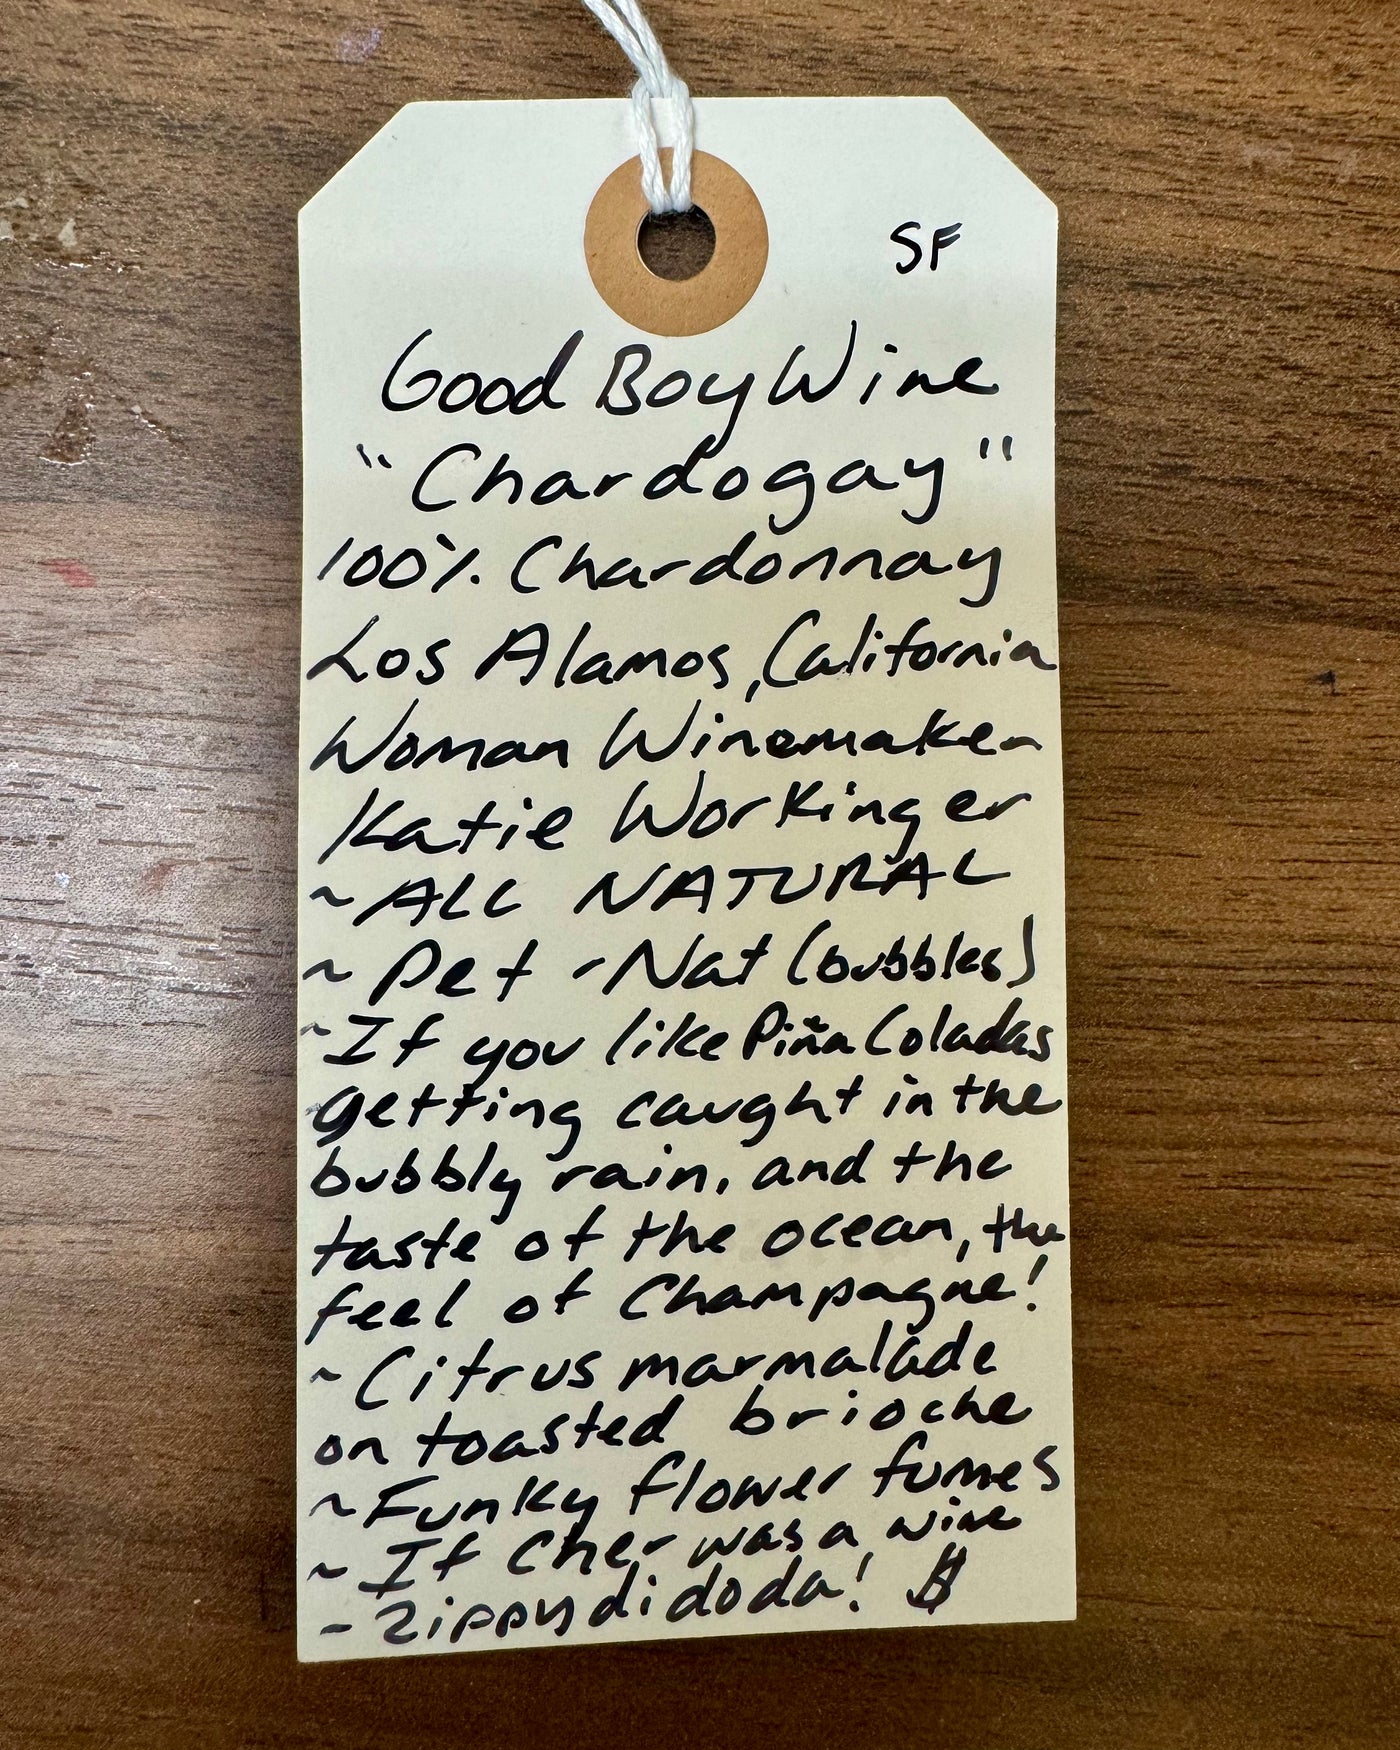 SF
Good Boy Wine
"Chardogay"
100% Chardonnay
Los Alamos, California
Woman Winemaker
Katie Workinger
~ ALL NATURAL
~ Pet-Nat (bubbles)
~ If you like Piña Coladas
getting caught in the
bubbly rain, and the
taste of the ocean, the
feel of Champagne!
~ Citrus marmalade
on toasted brioche
~ Funky flower fumes
~ If Cher was a wine
- Zippydidoda! $